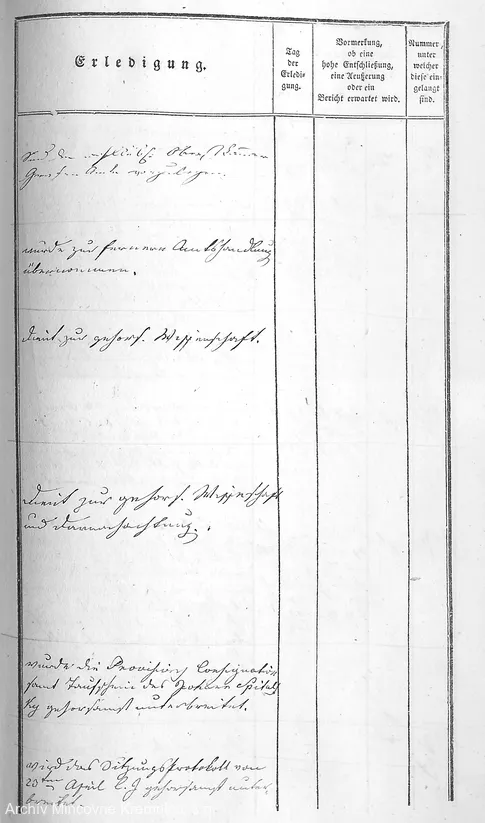 Erledigung.
Tag
der
Erledi-
gung.
Vormerkung,
ob eine
hohe Entschließung,
eine Aeußerung
oder ein
Bericht erwartet wird.
Nummer,
unter
welcher
diese ein-
gelangt
sind.
Sind dem
vorzulegen.
wurde zur fernern Amtshandlung
übernommen.
dient zur gehors. Wissenschaft.
dient zur gehors. Wissenschaft
und Darnachachtung.
wurde die Provisions Consignation
samt Taufschein des Johann
gehorsamst unterbreitet.
wird das Sitzungsprotokoll von
23ten April l. J. gehorsamst unter-
breitet.
Archiv Mincovna Kremnica